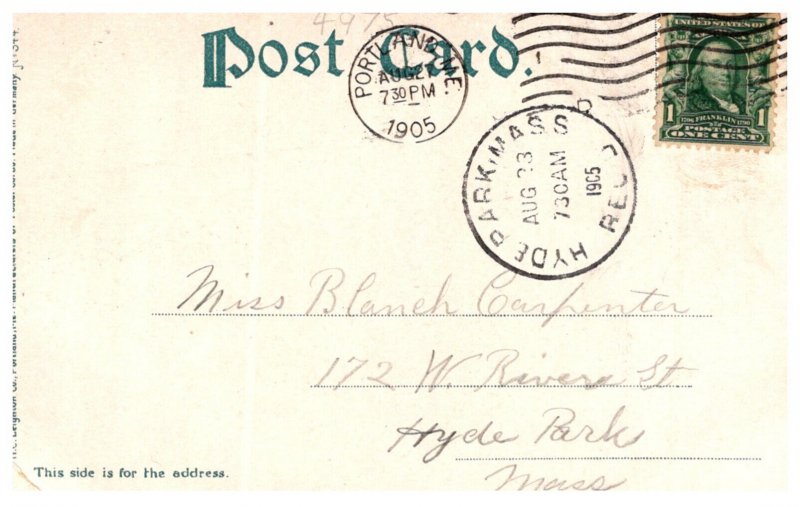 4975
Post Card.
PORTLAND, ME.
AUG 27
7 30 PM
1905
HYDE PARK, MASS.
AUG 28
730AM
1905
REC'D
UNITED STATES OF AMERICA
1 FRANKLIN 1
POSTAGE
ONE CENT
Miss Blanch Carpenter
172 W. Rivera St
Hyde Park
Mass
This side is for the address.
Leighton Co., Portland, Me. Manufacturers of Postal Cards. Made in Germany